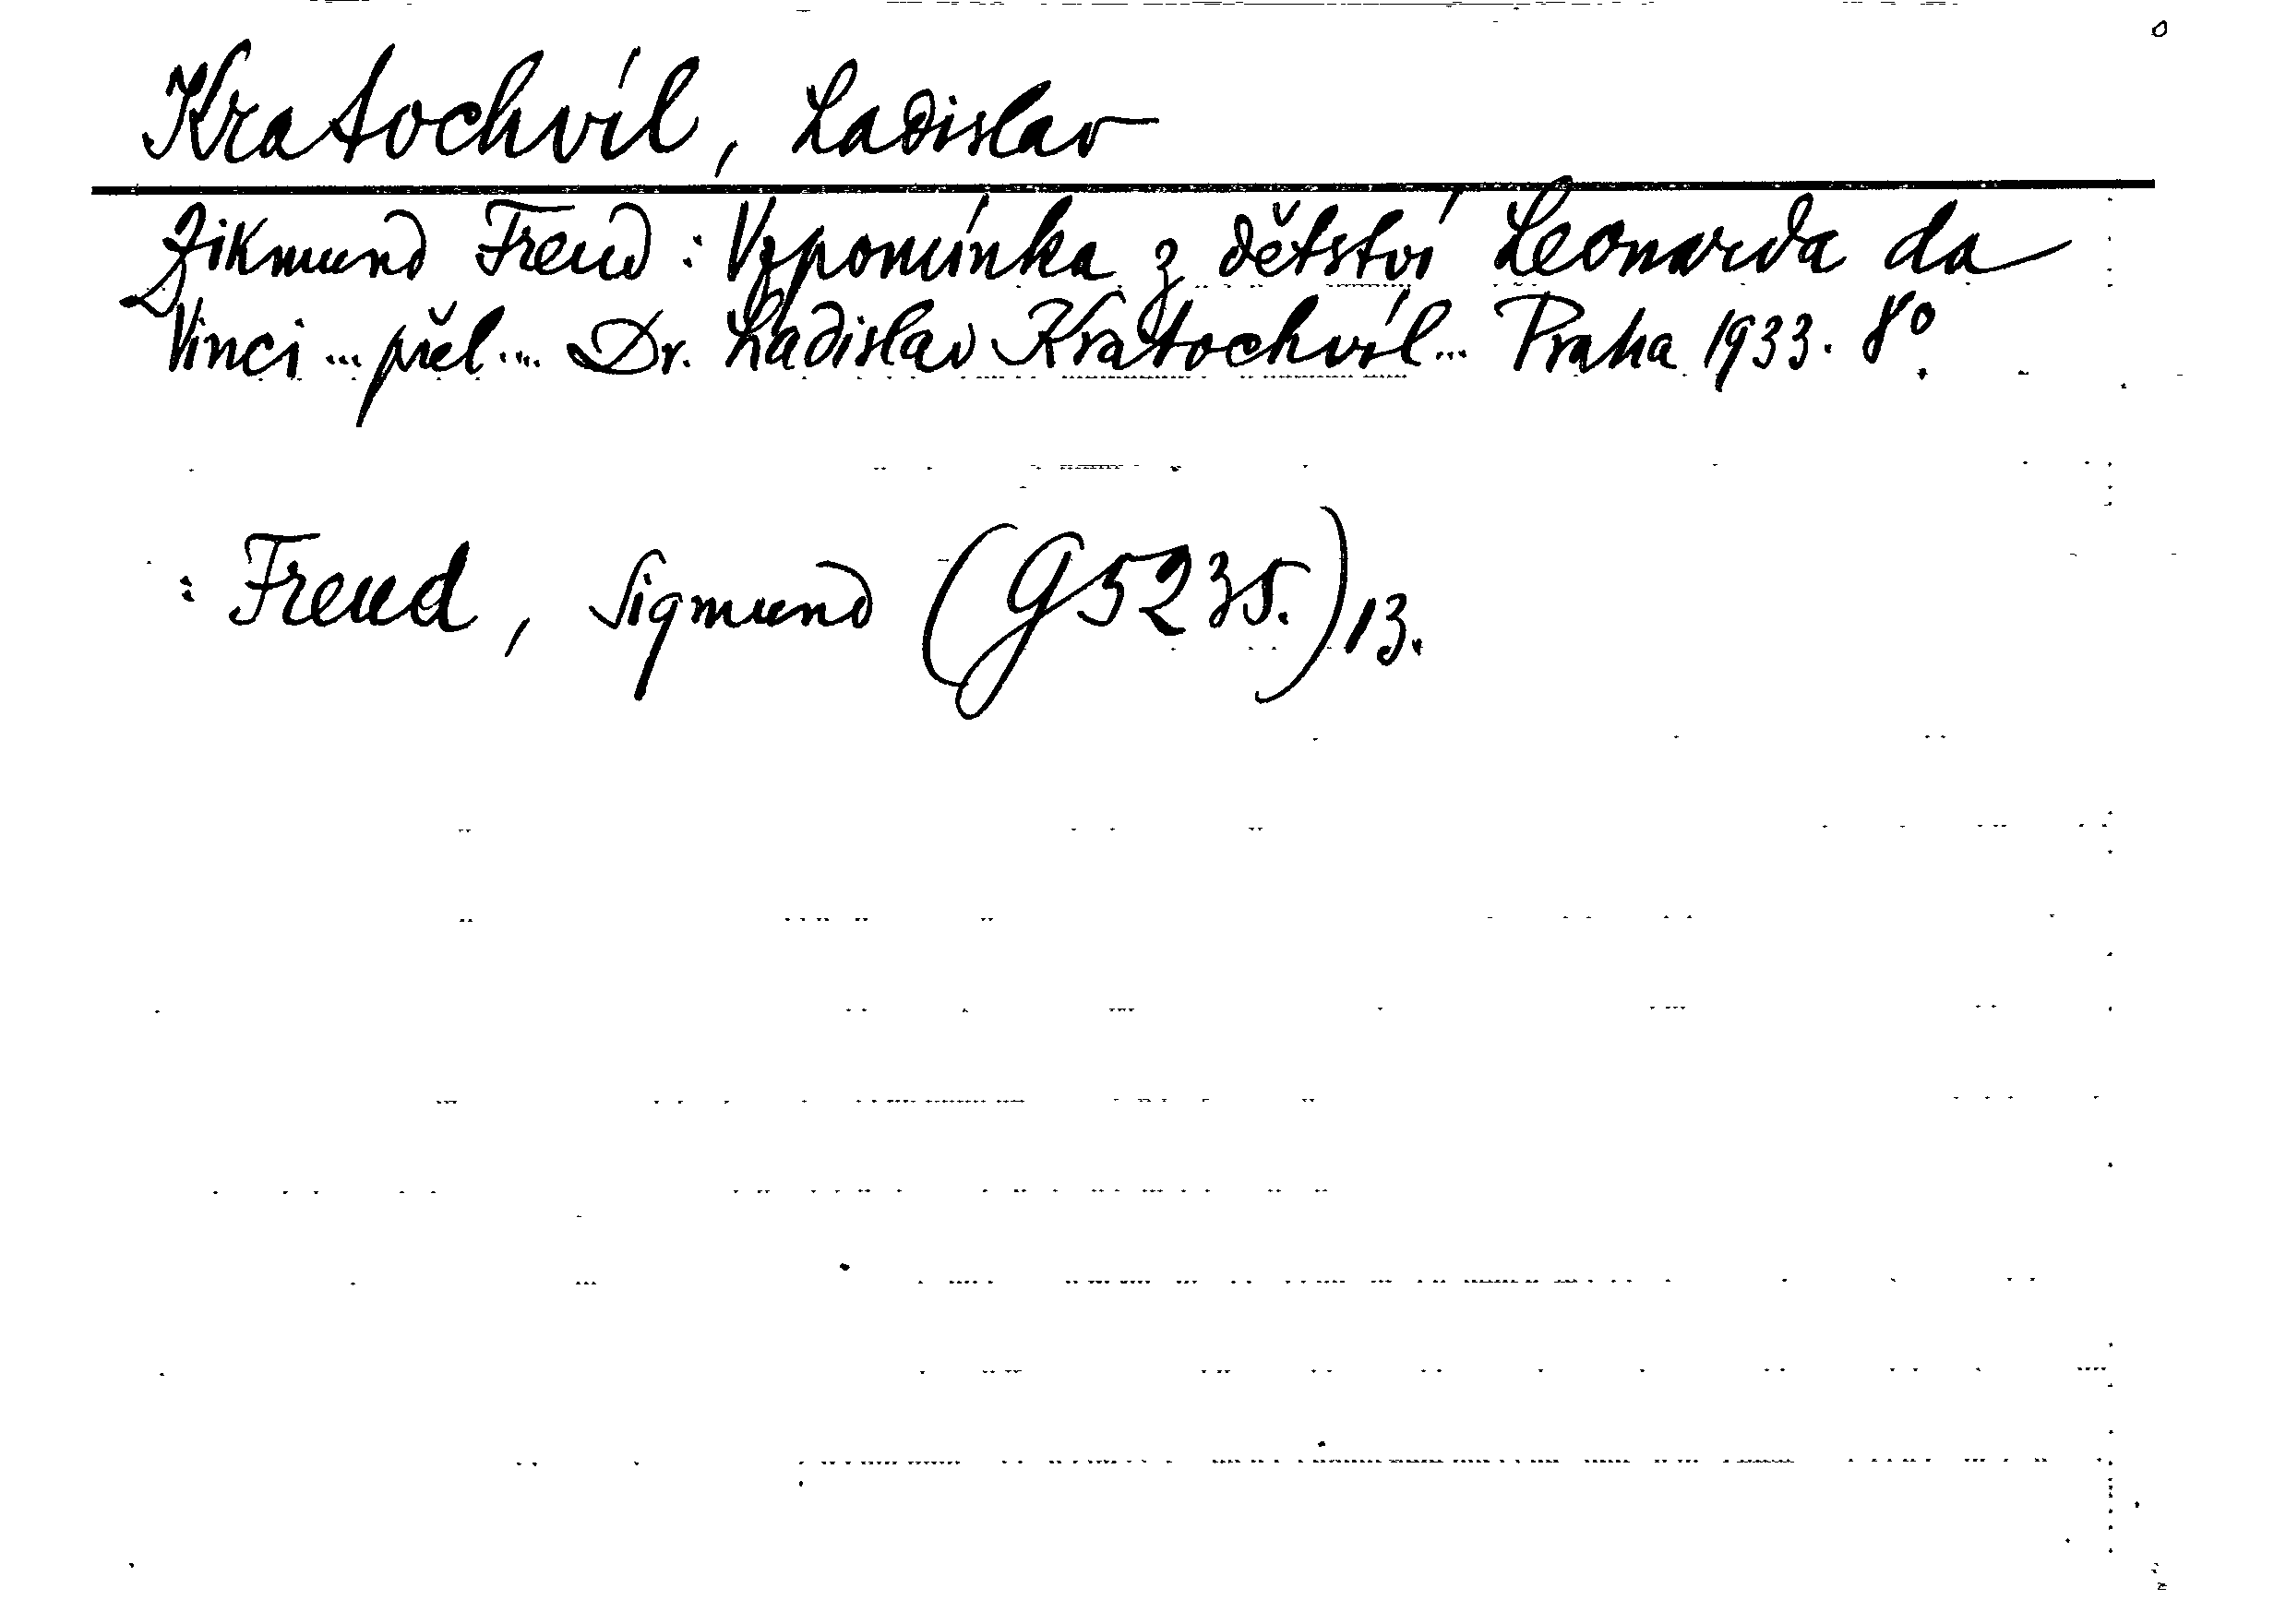 Kratochvíl, Ladislav
Zikmund Freud: Vzpomínka z dětství Leonarda da
Vinci ... přel ... Dr. Ladislav Kratochvíl ... Praha 1933. 8°.
: Freud, Sigmund (G5235.)13.